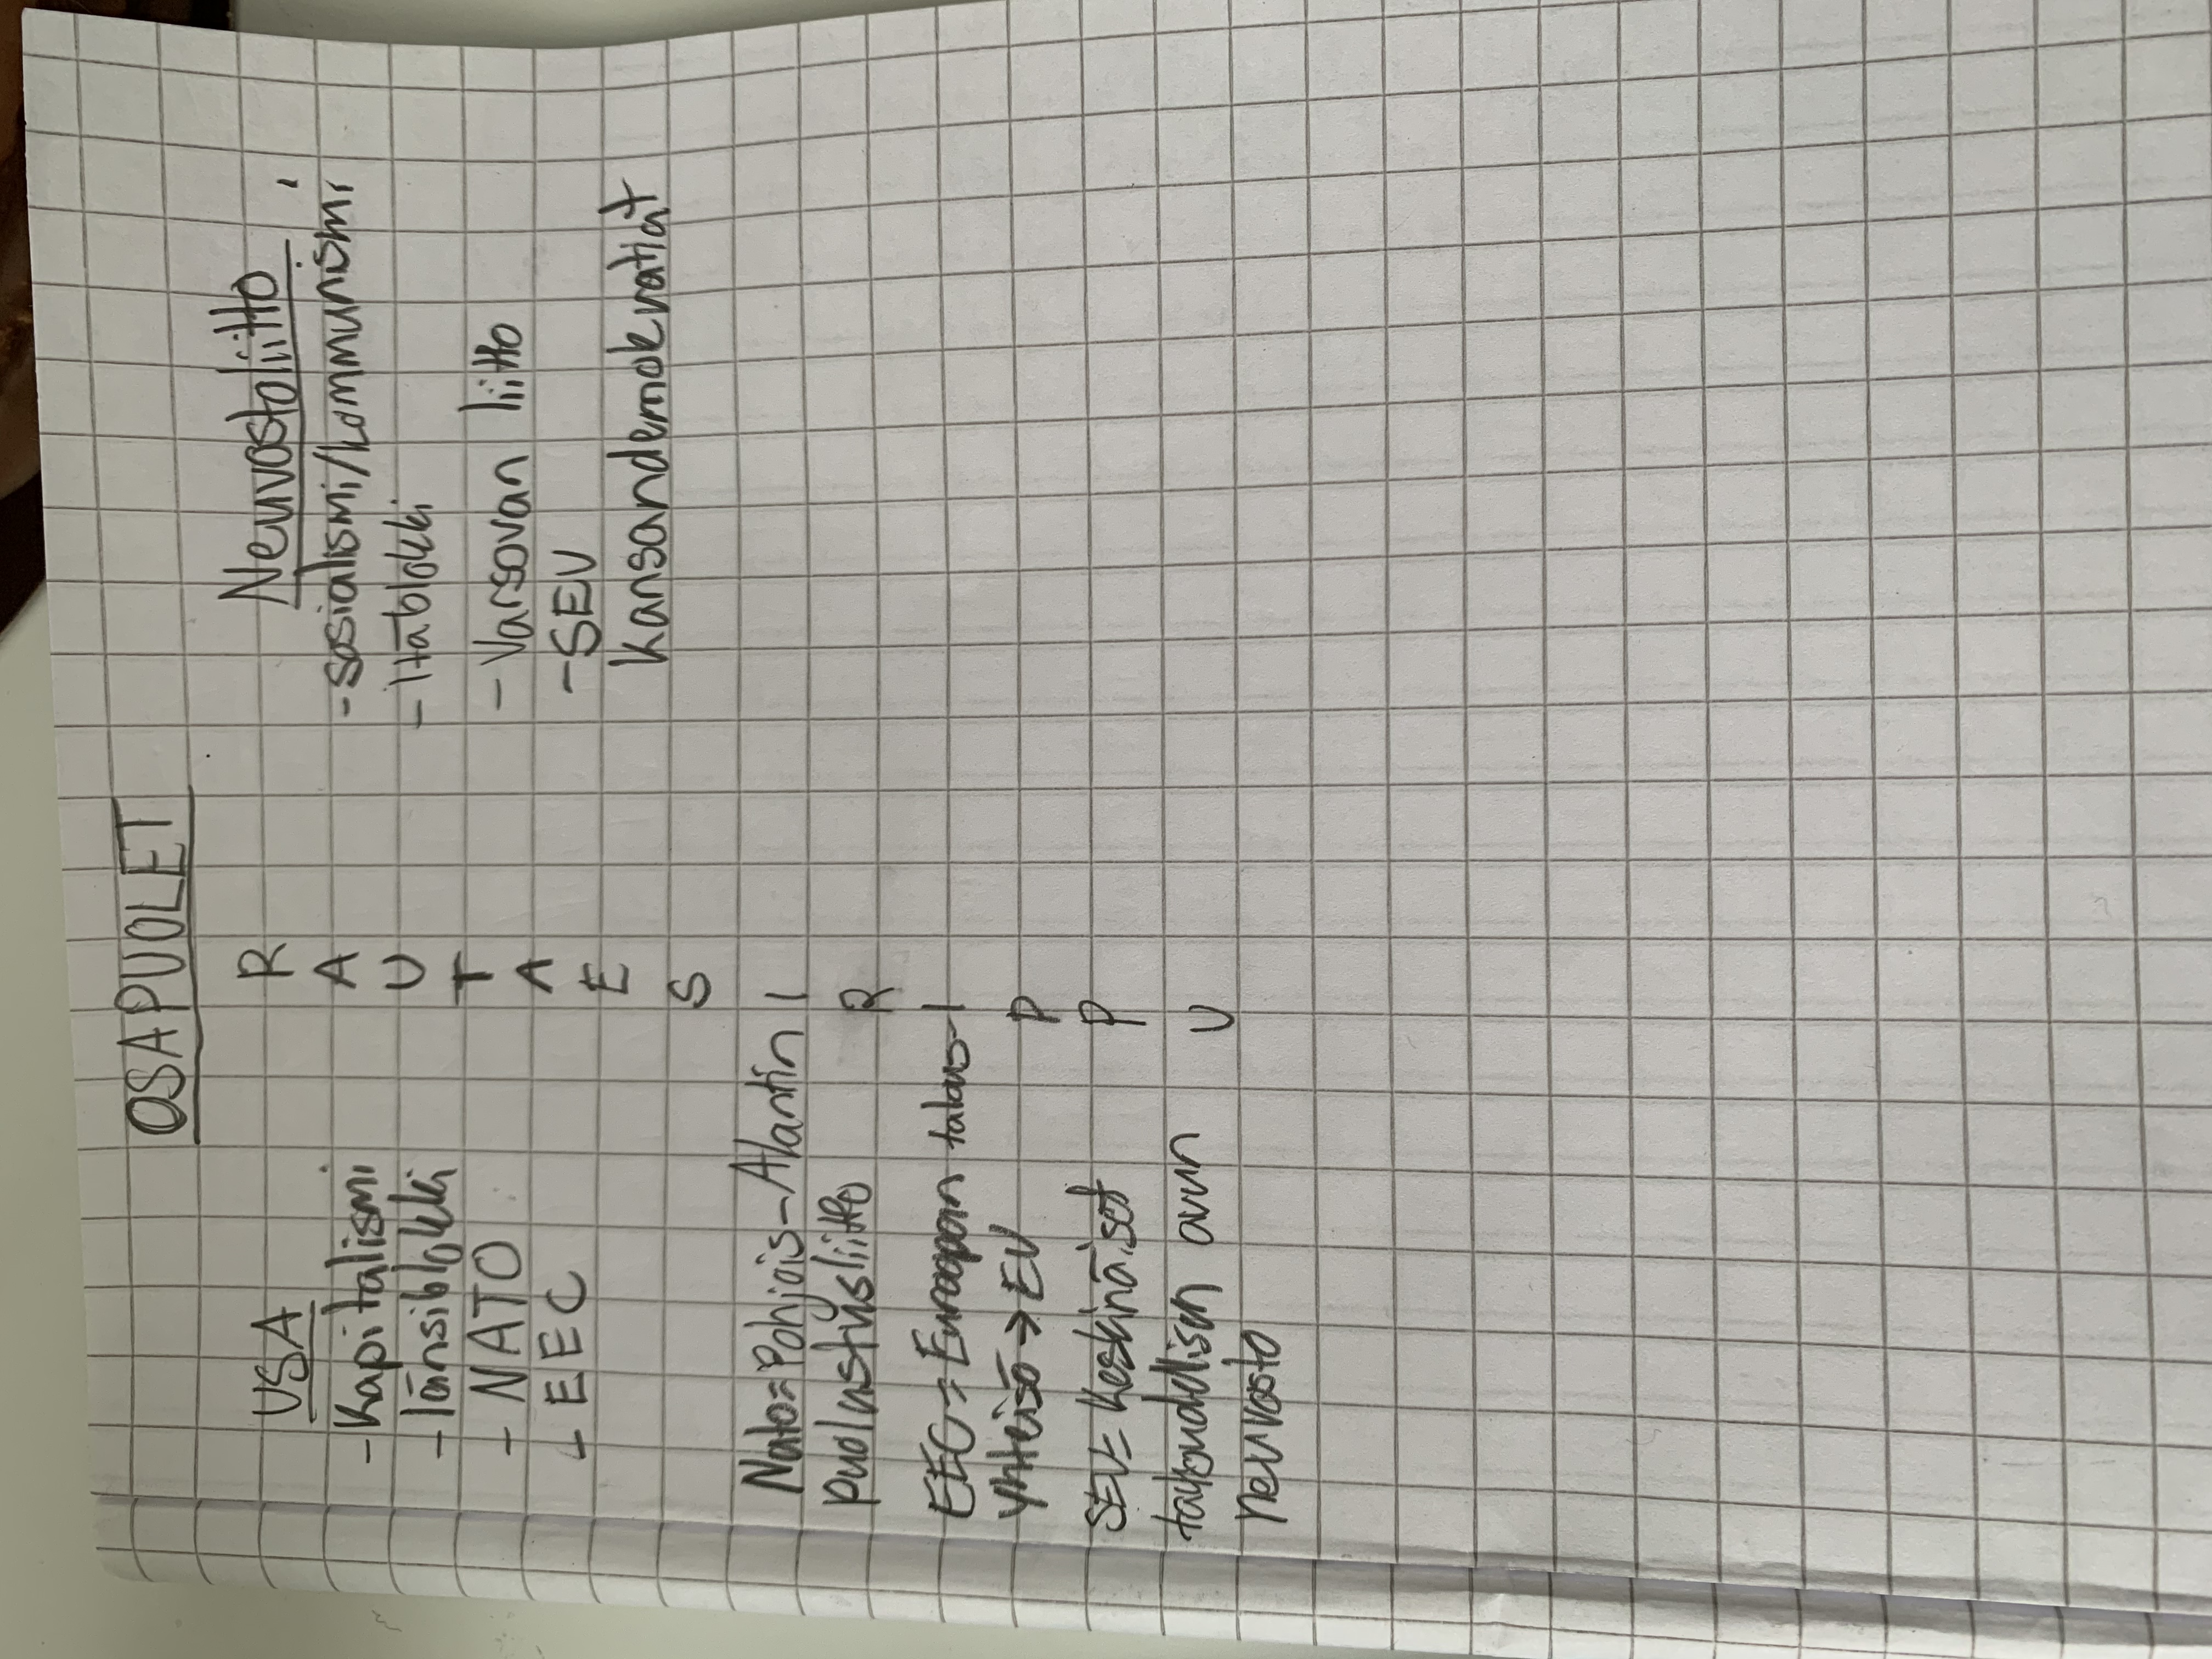 OSAPUOLET
USA
-Kapitalismi
-länsiblokki
- NATO
- EEC
R
A
U
T
A
E
S
I
R
I
P
P
U
Neuvostoliitto
-sosialismi/kommunismi
- Itäblokki
- Varsovan liitto
-SEV
Kansandemokratiat
Nato=Pohjois-Atlantin
puolustusliitto
EEC= Euroopan talous-
yhteisö→EU
SEV= Keskinäiset
taloudellisen avun
neuvosto